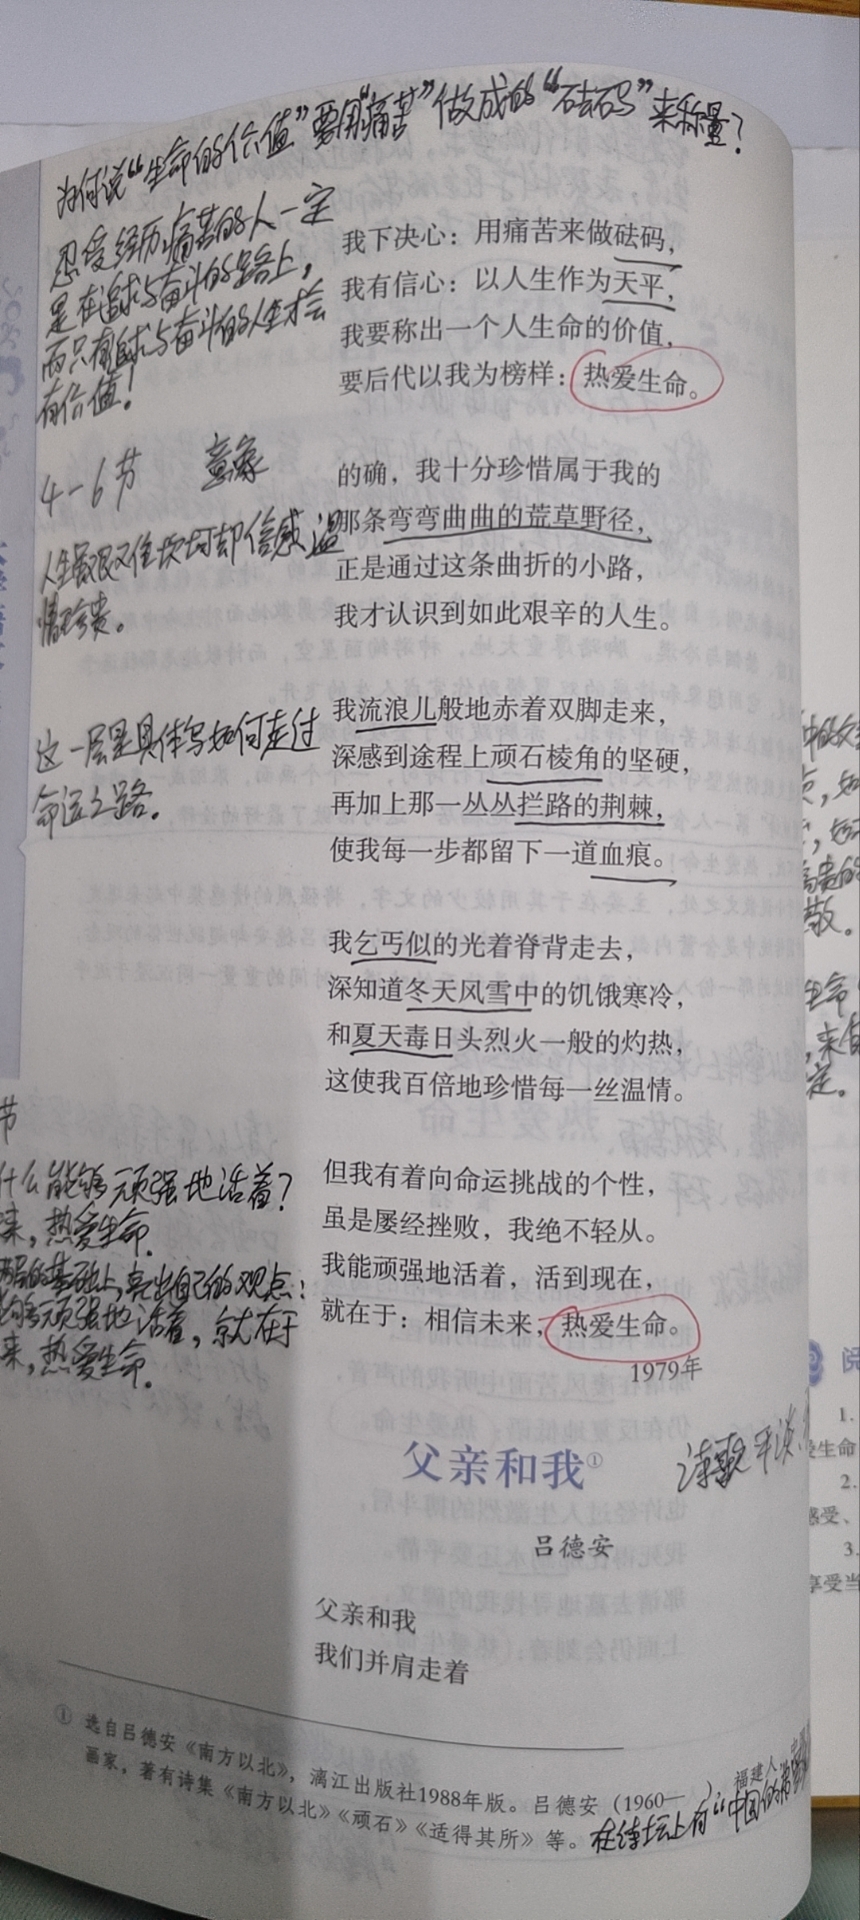 为何说“生命的价值”要用“痛苦”做成的“砝码”来称量？
忍受经历痛苦的人一定
是在追求与奋斗的路上，
而只有追求与奋斗的人生才会
有价值！
我下决心：用痛苦来做砝码，
我有信心：以人生作为天平，
我要称出一个人生命的价值，
要后代以我为榜样：热爱生命。
4-6节 意象
人生艰难又坎坷却倍感温
情珍贵。
的确，我十分珍惜属于我的
那条弯弯曲曲的荒草野径，
正是通过这条曲折的小路，
我才认识到如此艰辛的人生。
这一层是具体写如何走过
命运之路。
我流浪儿般地赤着双脚走来，
深感到途程上顽石棱角的坚硬，
再加上那一丛丛拦路的荆棘，
使我每一步都留下一道血痕。
我乞丐似的光着脊背走去，
深知道冬天风雪中的饥饿寒冷，
和夏天毒日头烈火一般的灼热，
这使我百倍地珍惜每一丝温情。
节
什么能够顽强地活着？
来，热爱生命。
的基础上，亮出自己的观点：
能够顽强地活着，就在于
来，热爱生命。
但我有着向命运挑战的个性，
虽是屡经挫败，我绝不轻从。
我能顽强地活着，活到现在，
就在于：相信未来，热爱生命。
1979年
父亲和我①
诗歌平淡
吕德安
父亲和我
我们并肩走着
① 选自吕德安《南方以北》，漓江出版社1988年版。吕德安（1960— ），福建人，
画家，著有诗集《南方以北》《顽石》《适得其所》等。在诗坛上有“中国的
阅
1.
爱生命
2.
感受、
3.
享受当